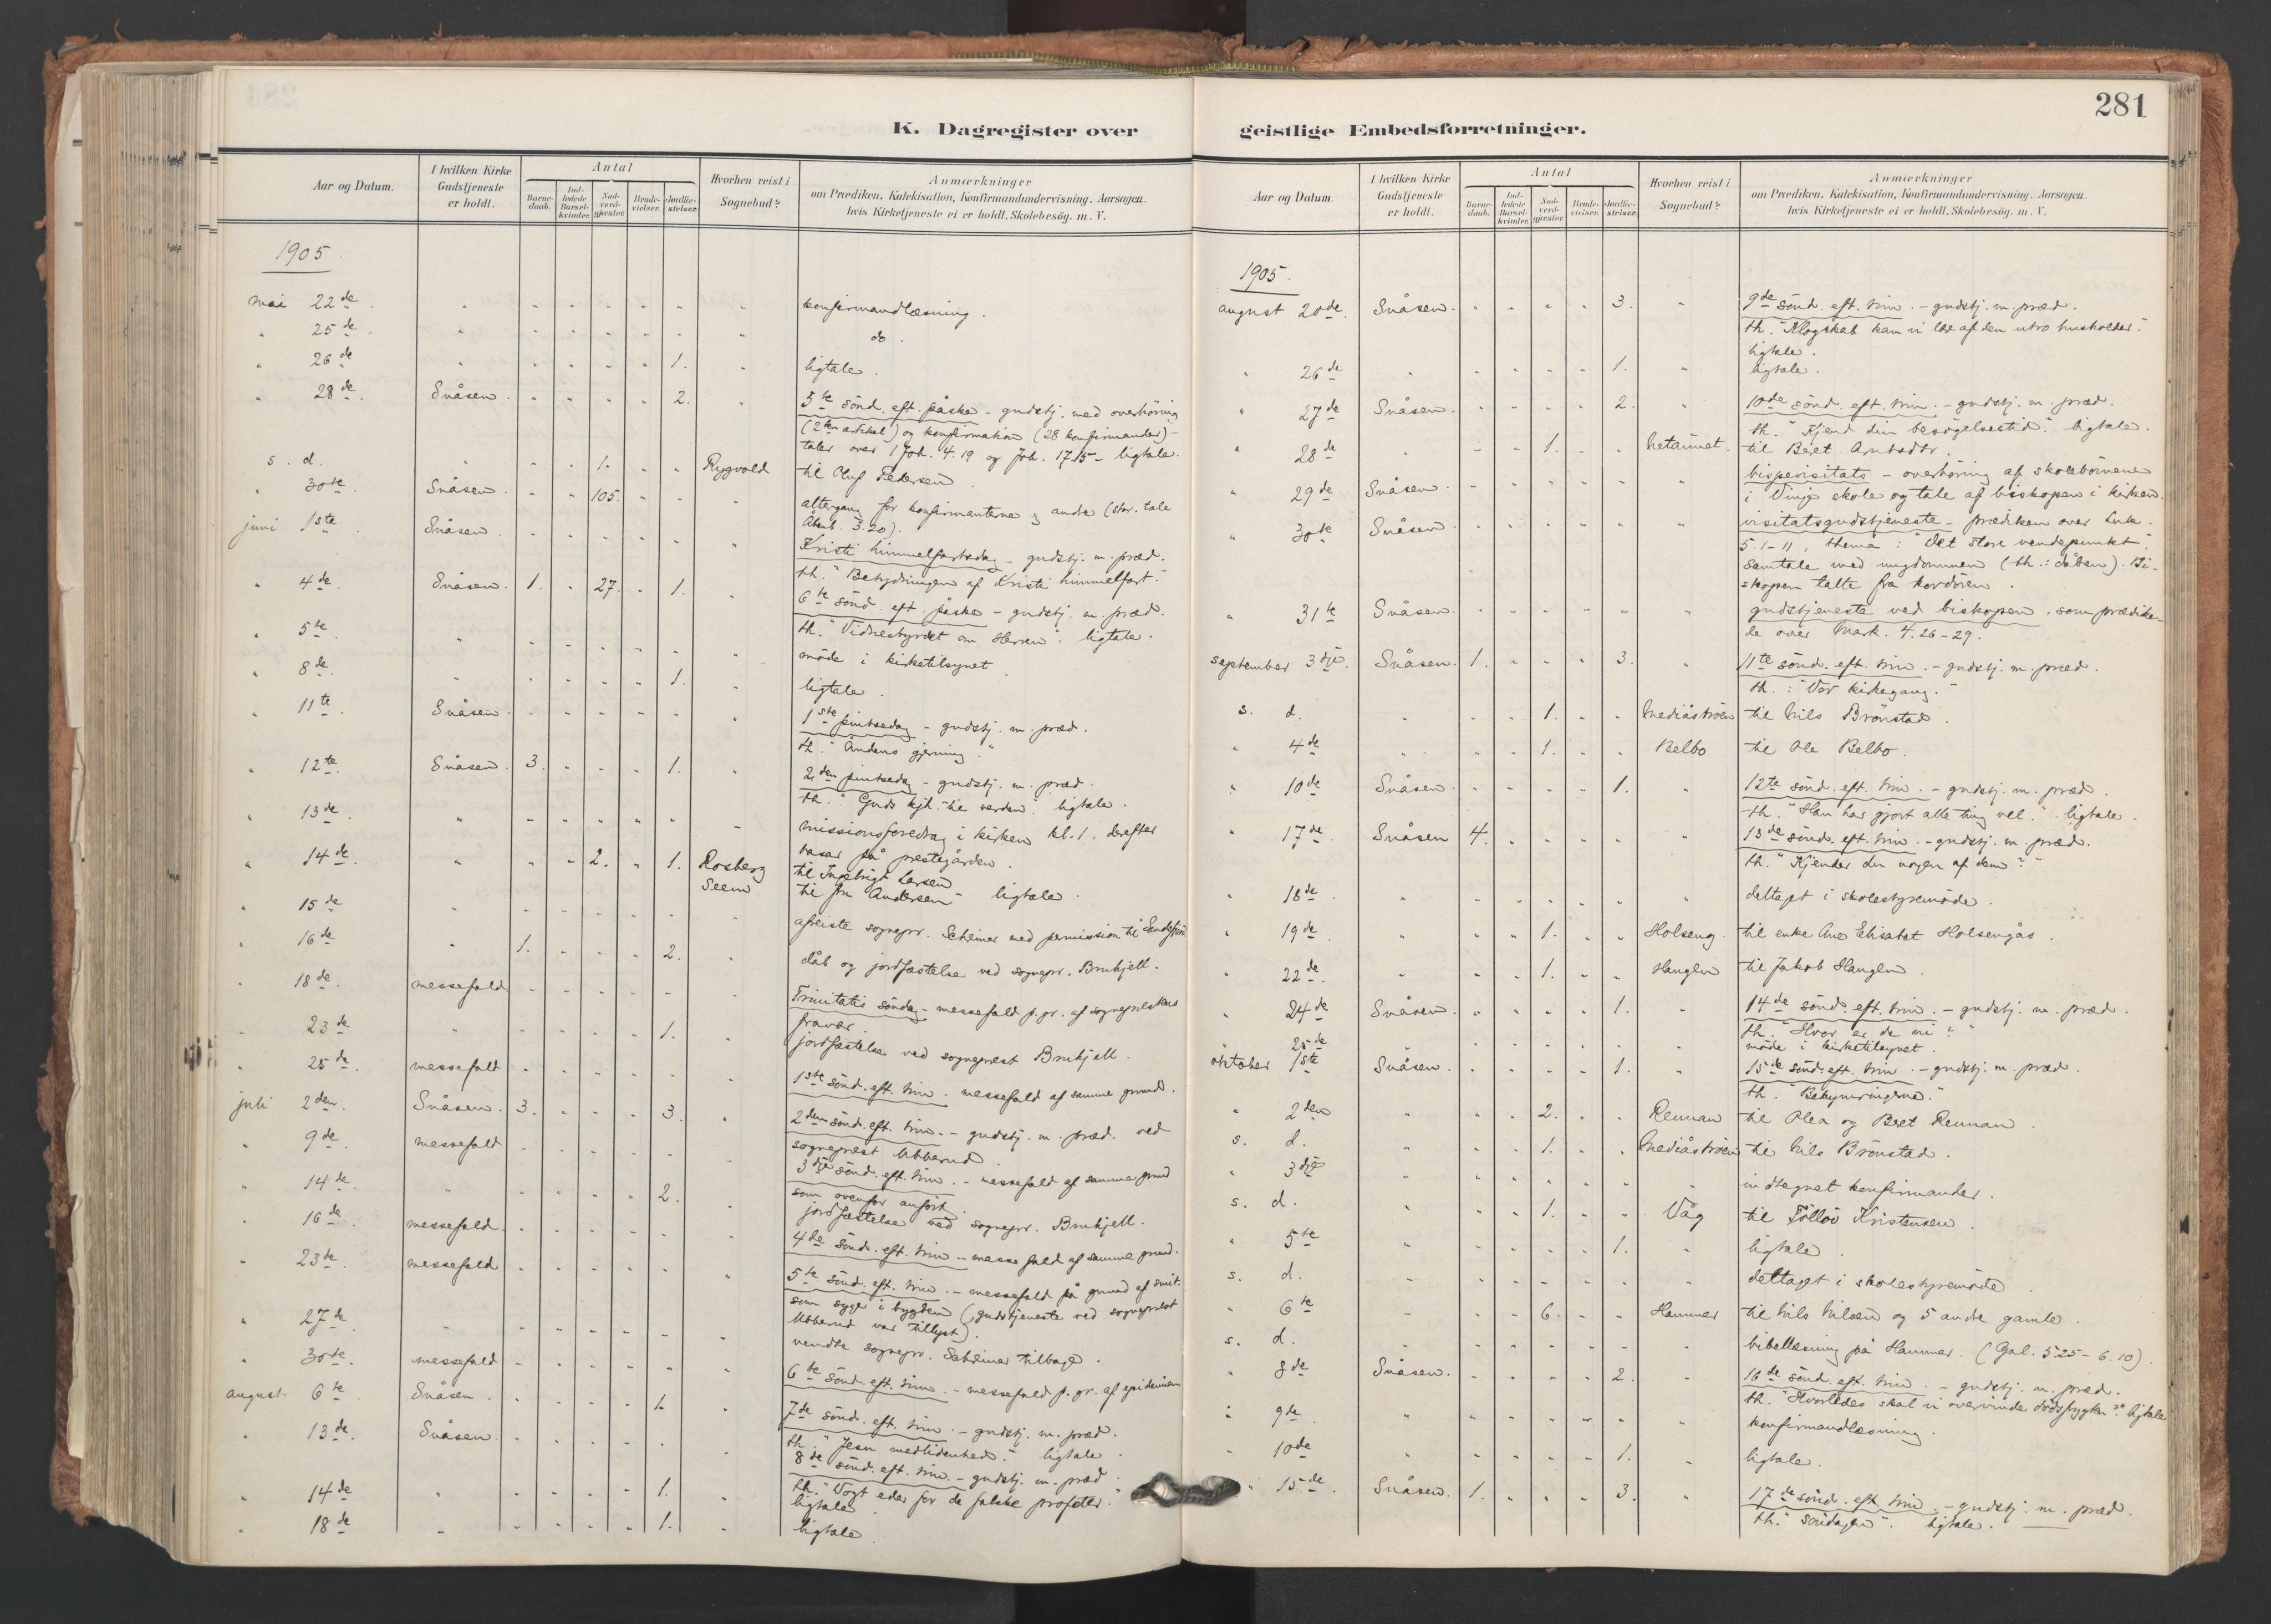 281
K. Dagregister over
Aar og Datum.
I hvilken Kirke Gudstjeneste er holdt.
Antal
Barne-daab.
Ind-ledede Barsel-kvinder.
Nad-verd-gjæster.
Brude-vielser.
Jordfæ-stelser.
Hvorhen reist i Sognebud?
Anmærkninger
om Prædiken, Katekisation, Konfirmandundervisning. Aarsagen,
hvis Kirketjeneste ei er holdt, Skolebesög. m. V.
1905.
mai 22de. " - - - - - " konfirmandlæsning.
" 25de. " - - - - - " do.
" 26de " - - - - 1. " ligtale.
" 28de. Snåsen. - - - - 2. " 5te sönd. eft. påske - gudstj. med overhöring
(2den artikel) og konfirmation (28 konfirmander) -
taler over 1 Joh. 4.19 og Joh. 17.15 - ligtale.
s. d. " - - 1. - - Rygvold til Oluf Pedersen.
" 30te. Snåsen. - - 105. - - " altergang for konfirmanterne og andre (skr. tale
Åbenb. 3.20).
juni 1ste Snåsen. - - - - - " Kristi himmelfartsdag - gudstj. m. præd.
th. "Betydningen af Kristi himmelfart."
" 4de. Snåsen. 1. - 27. - 1. " 6te sönd. eft. påske - gudstj. m. præd.
th. "Vidnesbyrdet om Herren". ligtale.
" 5te. " - - - - - " möde i kirketilsynet.
" 8de. " - - - - 1. " ligtale.
" 11te. Snåsen. - - - - - " 1ste pintsedag - gudstj. m. præd.
th. "Åndens gjerning."
" 12te. Snåsen. 3. - - - 1. " 2den pintsedag - gudstj. m. præd.
th. "Guds kjh. til verden". ligtale.
" 13de. " - - - - - " missionsforedrag i kirken kl. 1. derefter
basar på prestegården.
" 14de. " - - 2. - 1. Rosberg til Ingebrigt Larsen
Seem til fru Andersen - ligtale.
" 15de " - - - - - " afreiste sognepr. Scheiner med permission til
" 16de " 1. - - - 2. " dåb og jordfæstelse ved sognepr. Bruhjell.
" 18de. messefald - - - - - " Trinitatis söndag - messefald p. gr. af sogneprestens
fravær.
" 23de " - - - - 1. " jordfæstelse ved sogneprest Bruhjell.
" 25de. messefald - - - - - " 1ste sönd. eft. trin. messefald af samme grund.
juli 2den. Snåsen. 3. - - - 3. " 2den sönd. eft. trin. - gudstj. m. præd. ved
sogneprest
" 9de. messefald - - - - - " 3dje sönd. eft. trin. - messefald af samme grund
som ovenfor anfört.
" 14de. " - - - - 2. " jordfæstelse ved sognepr. Bruhjell.
" 16de. messefald. - - - - - " 4de sönd. eft. trin. - messefald af samme grund.
" 23de. messefald - - - - - " 5te sönd. eft. trin. - messefald på grund af smit-
som syge i bygden (gudstjeneste ved sogneprest
var tillyst).
" 27de " - - - - - " vendte sognepr. Scheiner tilbage.
" 30te. messefald - - - - - " 6te sönd. eft. trin. - messefald p. gr. af epidemien
august 6te Snåsen. - - - - 1. " 7de sönd. eft. trin. - gudstj. m. præd.
th. "Jesu medlidenhed." ligtale
" 13de. Snåsen. - - - - - " 8de sönd. eft. trin. - gudstj. m. præd.
th. "Vogt eder for de falske profeter."
" 14de " - - - - 1. " ligtale
" 18de " - - - - 1. " ligtale
geistlige Embedsforretninger.
Aar og Datum.
I hvilken Kirke Gudstjeneste er holdt.
Antal
Barne-daab.
Ind-ledede Barsel-kvinder.
Nad-verd-gjæster.
Brude-vielser.
Jordfæ-stelser.
Hvorhen reist i Sognebud?
Anmærkninger
om Prædiken, Katekisation, Konfirmandundervisning. Aarsagen,
hvis Kirketjeneste ei er holdt, Skolebesög. m. V.
1905.
august 20de. Snåsen. - - - - 3. " 9de sönd. eft. trin. - gudstj. m. præd.
th. "Klogskab kan vi lære af den utro husholder."
ligtale.
" 26de " - - - - 1. " ligtale.
" 27de Snåsen. - - - - 2. " 10de sönd. eft. trin. - gudstj. m. præd.
th. "Kjend din besögelsestid." ligtale.
" 28de " - - 1. - - til Beret
" 29de Snåsen. - - - - - " bispevisitats - overhöring af skolebörnene
i Vinje skole og tale af biskopen i kirken.
" 30te Snåsen - - - - - " visitatsgudstjeneste - prædiken over Luk.
5.1-11, thema: "Det store vendepunkt".
Samtale med ungdommen (th.: dåben). Bi-
skopen talte fra kordören.
" 31te Snåsen. - - - - - " gudstjeneste ved biskopen, som prædike-
de over Mark. 4.26-29.
september 3dje. Snåsen. 1. - - - 3. " 11te sönd. eft. trin. - gudstj. m. præd.
th.: "Vor kirkegang."
s. d. " - - 1. - - Mediåströen til Nils Brönstad.
" 4de " - - 1. - - Belbo til Ole Belbo.
" 10de Snåsen. - - - - 1. " 12te sönd. eft. trin. - gudstj. m. præd.
th. "Han har gjort alle ting vel." ligtale.
" 17de Snåsen 4. - - - - " 13de sönd. eft. trin. - gudstj. m. præd.
th. "Kjender du nogen af dem?"
" 18de " - - - - - " deltaget i skolestyremöde.
" 19de " - - 1. - - Holseng. til enke Ane Elisabet Holsengås.
" 22de. " - - 1. - - Hauglen til Jakob Hauglen.
" 24de Snåsen. - - - - 1. " 14de sönd. eft. trin. - gudstj. m. præd.
th. "Hvor er de ni?"
" 25de " - - - - - " möde i kirketilsynet.
oktober 1ste Snåsen. - - - - 1. " 15de sönd. eft. trin. - gudstj. m. præd.
th. "Bekymringerne."
" 2den " - - 2. - - Rennan til Olea og Beret Rennan.
s. d. " - - 1. - - Mediåströen til Nils Brönstad.
" 3dje " - - - - - " indtegnet konfirmander.
s. d. " - - 1. - - Våg til Föllöv Kristensen.
" 5te " - - - - 1. " ligtale.
s. d. " - - - - - " deltaget i skolestyremöde.
" 6te " - - 6. - - Hammer til Nils Nilsen og 5 andre gamle.
s. d. " - - - - - " bibellæsning på Hammer. (Gal. 5.25 - 6.10).
" 8de Snåsen. - - - - 2. " 16de sönd. eft. trin. - gudstj. m. præd.
th. "Hvorledes skal vi overvinde dödsfrygten?" ligtale
" 9de " - - - - - " konfirmandlæsning.
" 10de " - - - - 1. " ligtale.
" 15de. Snåsen. 1. - - - 3. " 17de sönd. eft. trin. - gudstj. m. præd.
th. "Söndagen". ligtale.